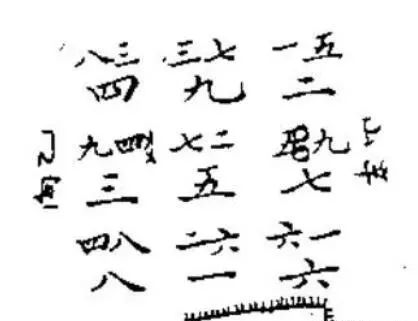 八三 三七 一五
四 九 二
九四 七二 五九
三 五 七
四八 二六 六一
八 一 六